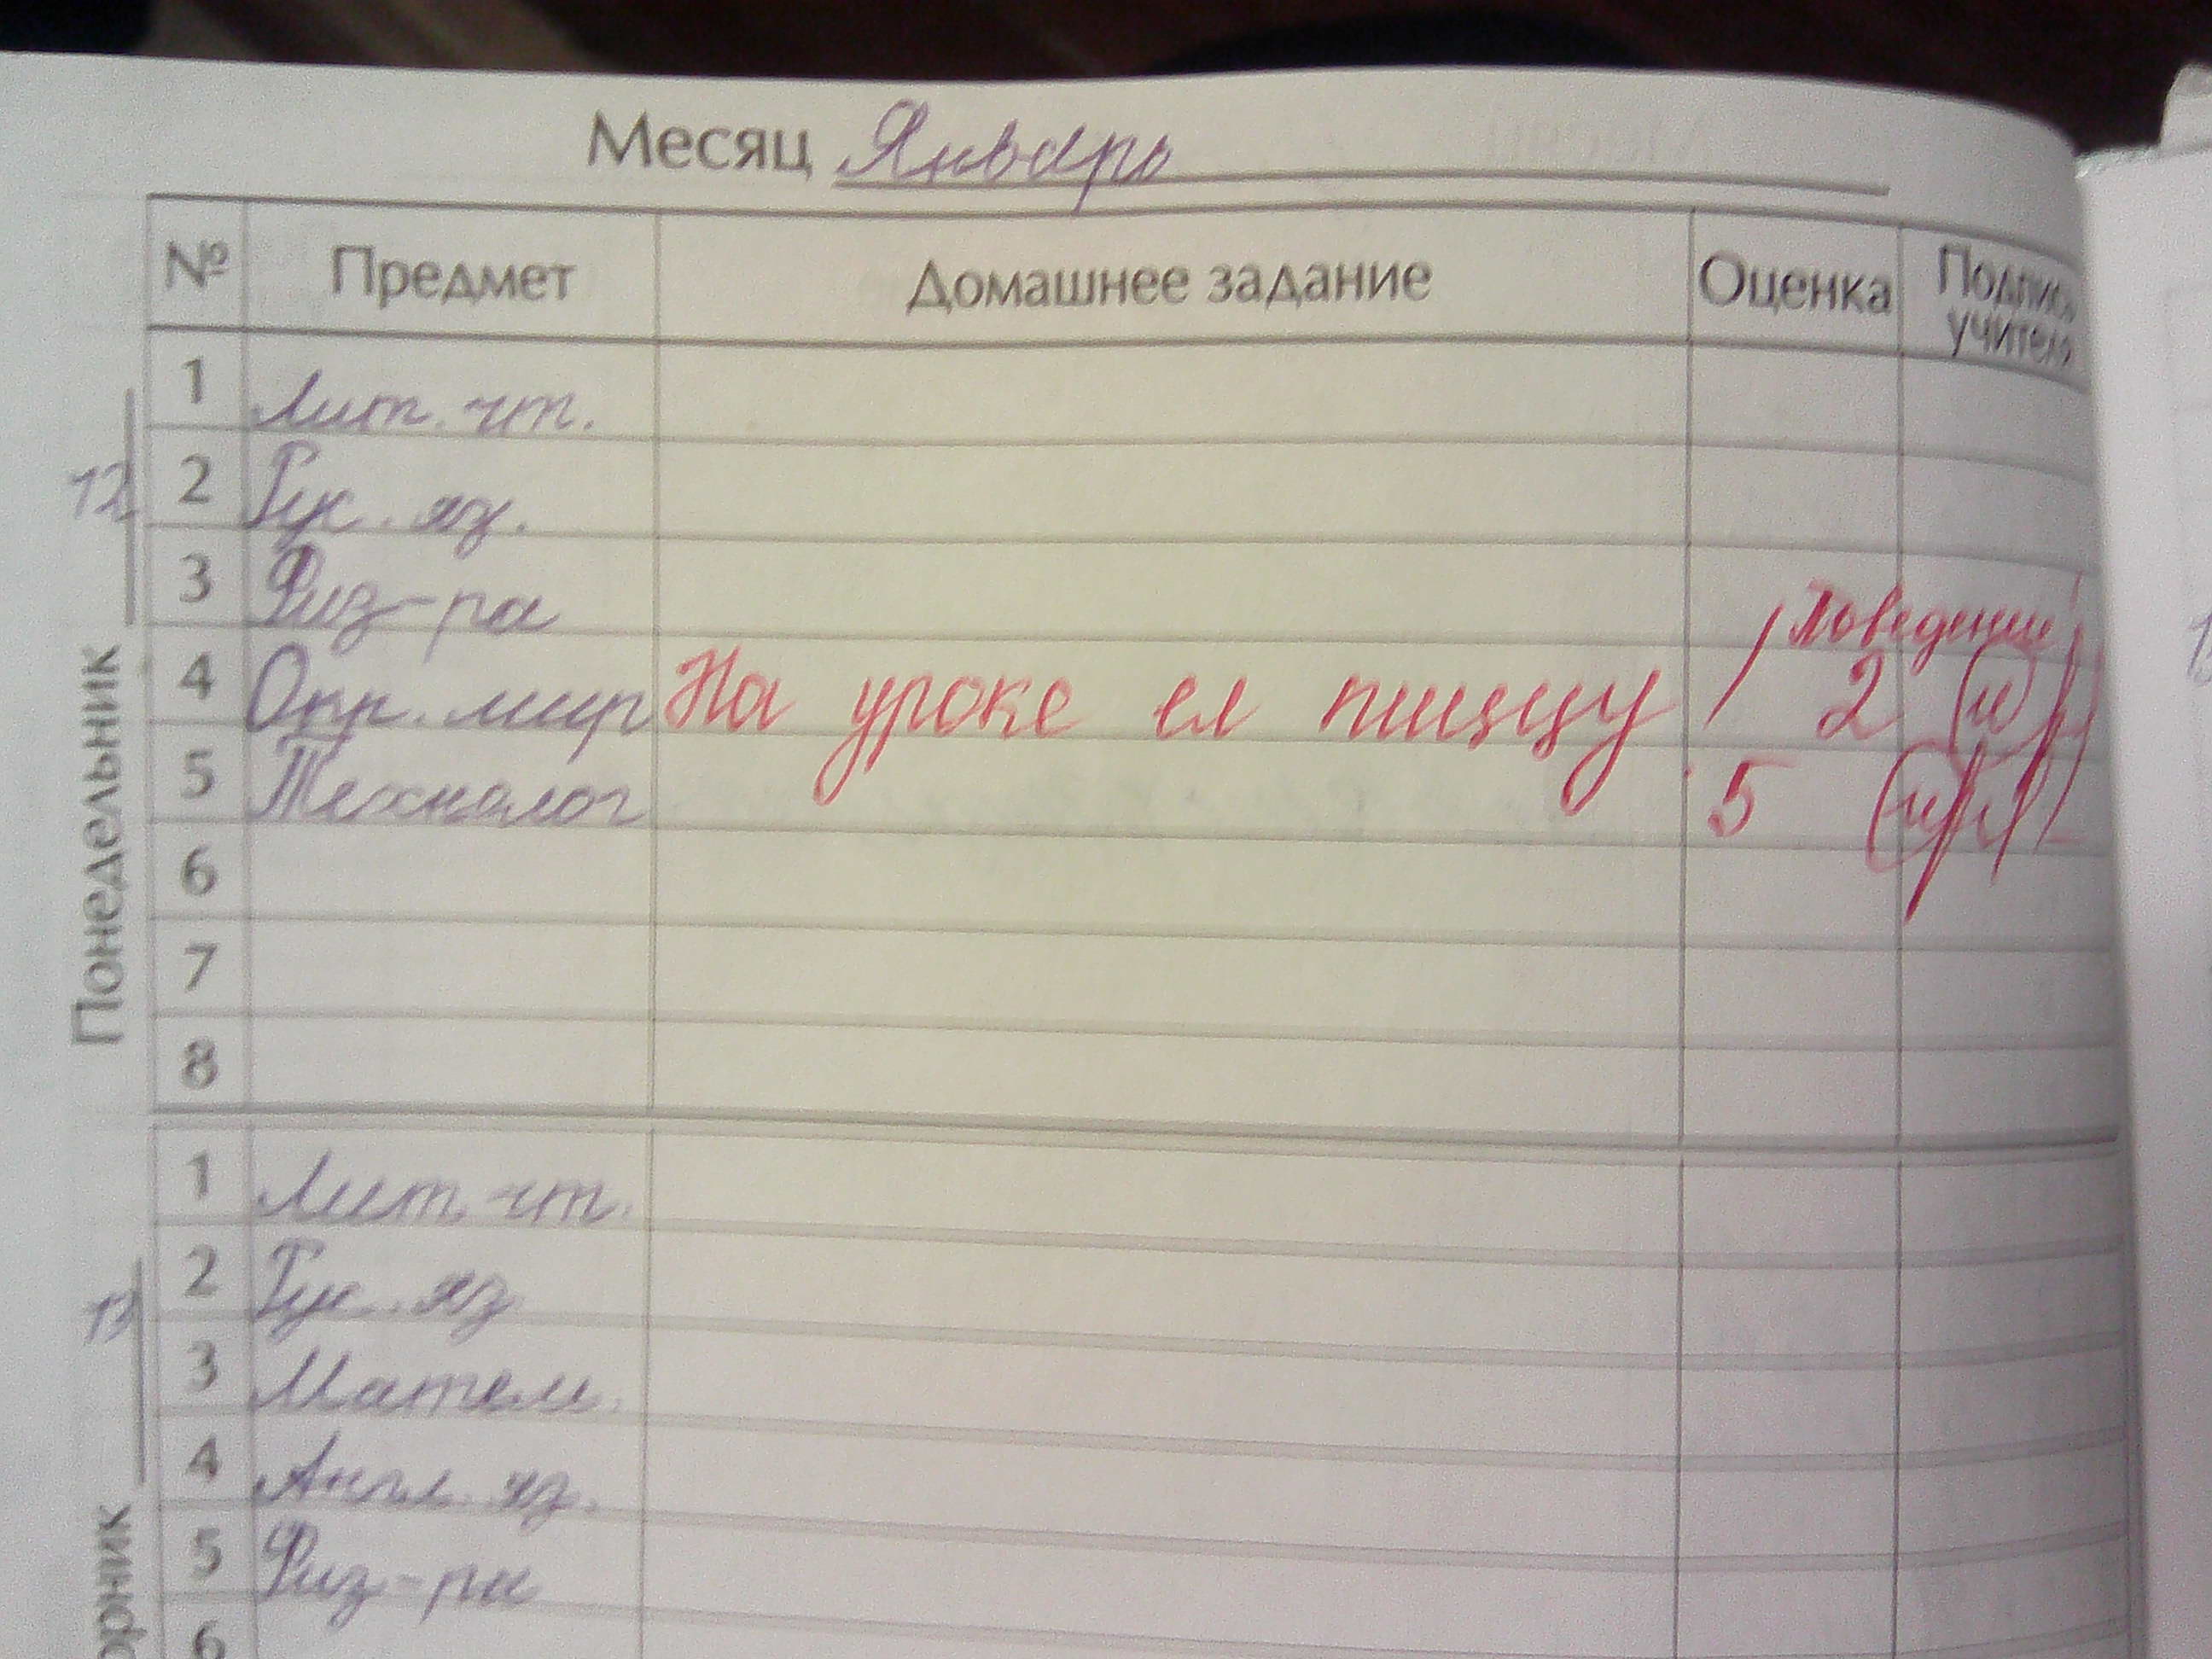 Месяц Январь
№ Предмет Домашнее задание Оценка Подпись учителя
Понедельник 12
1 Лит. чт.
2 Рус. яз.
3 Физ-ра
поведение
4 Окр. мир На уроке ел пиццу 2
5 Технолог 5
6
7
8
орник 13
1 Лит. чт.
2 Рус. яз
3 Матем.
4 Англ. яз.
5 Физ-ра
6